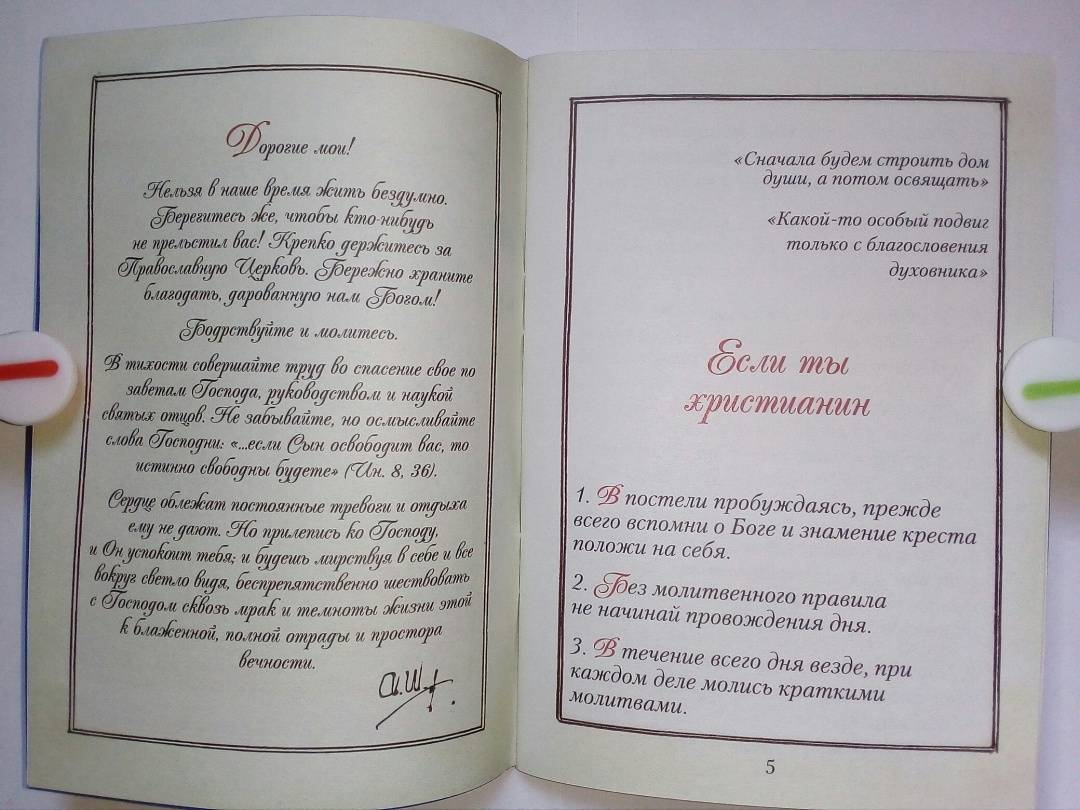 Дорогие мои!
Нельзя в наше время жить бездумно.
Берегитесь же, чтобы кто-нибудь
не прельстил вас! Крепко держитесь за
Православную Церковь. Бережно храните
благодать, дарованную нам Богом!
Бодрствуйте и молитесь.
В тихости совершайте труд во спасение свое по
заветам Господа, руководством и наукой
святых отцов. Не забывайте, но осмысливайте
слова Господни: «...если Сын освободит вас, то
истинно свободны будете» (Ин. 8, 36).
Сердце облежат постоянные тревоги и отдыха
ему не дают. Но прилепись ко Господу,
и Он успокоит тебя; и будешь мирствуя в себе и все
вокруг светло видя, беспрепятственно шествовать
с Господом сквозь мрак и темноты жизни этой
к блаженной, полной отрады и простора
вечности.
«Сначала будем строить дом
души, а потом освящать»
«Какой-то особый подвиг
только с благословения
духовника»
Если ты
христианин
1. В постели пробуждаясь, прежде
всего вспомни о Боге и знамение креста
положи на себя.
2. Без молитвенного правила
не начинай провождения дня.
3. В течение всего дня везде, при
каждом деле молись краткими
молитвами.
5